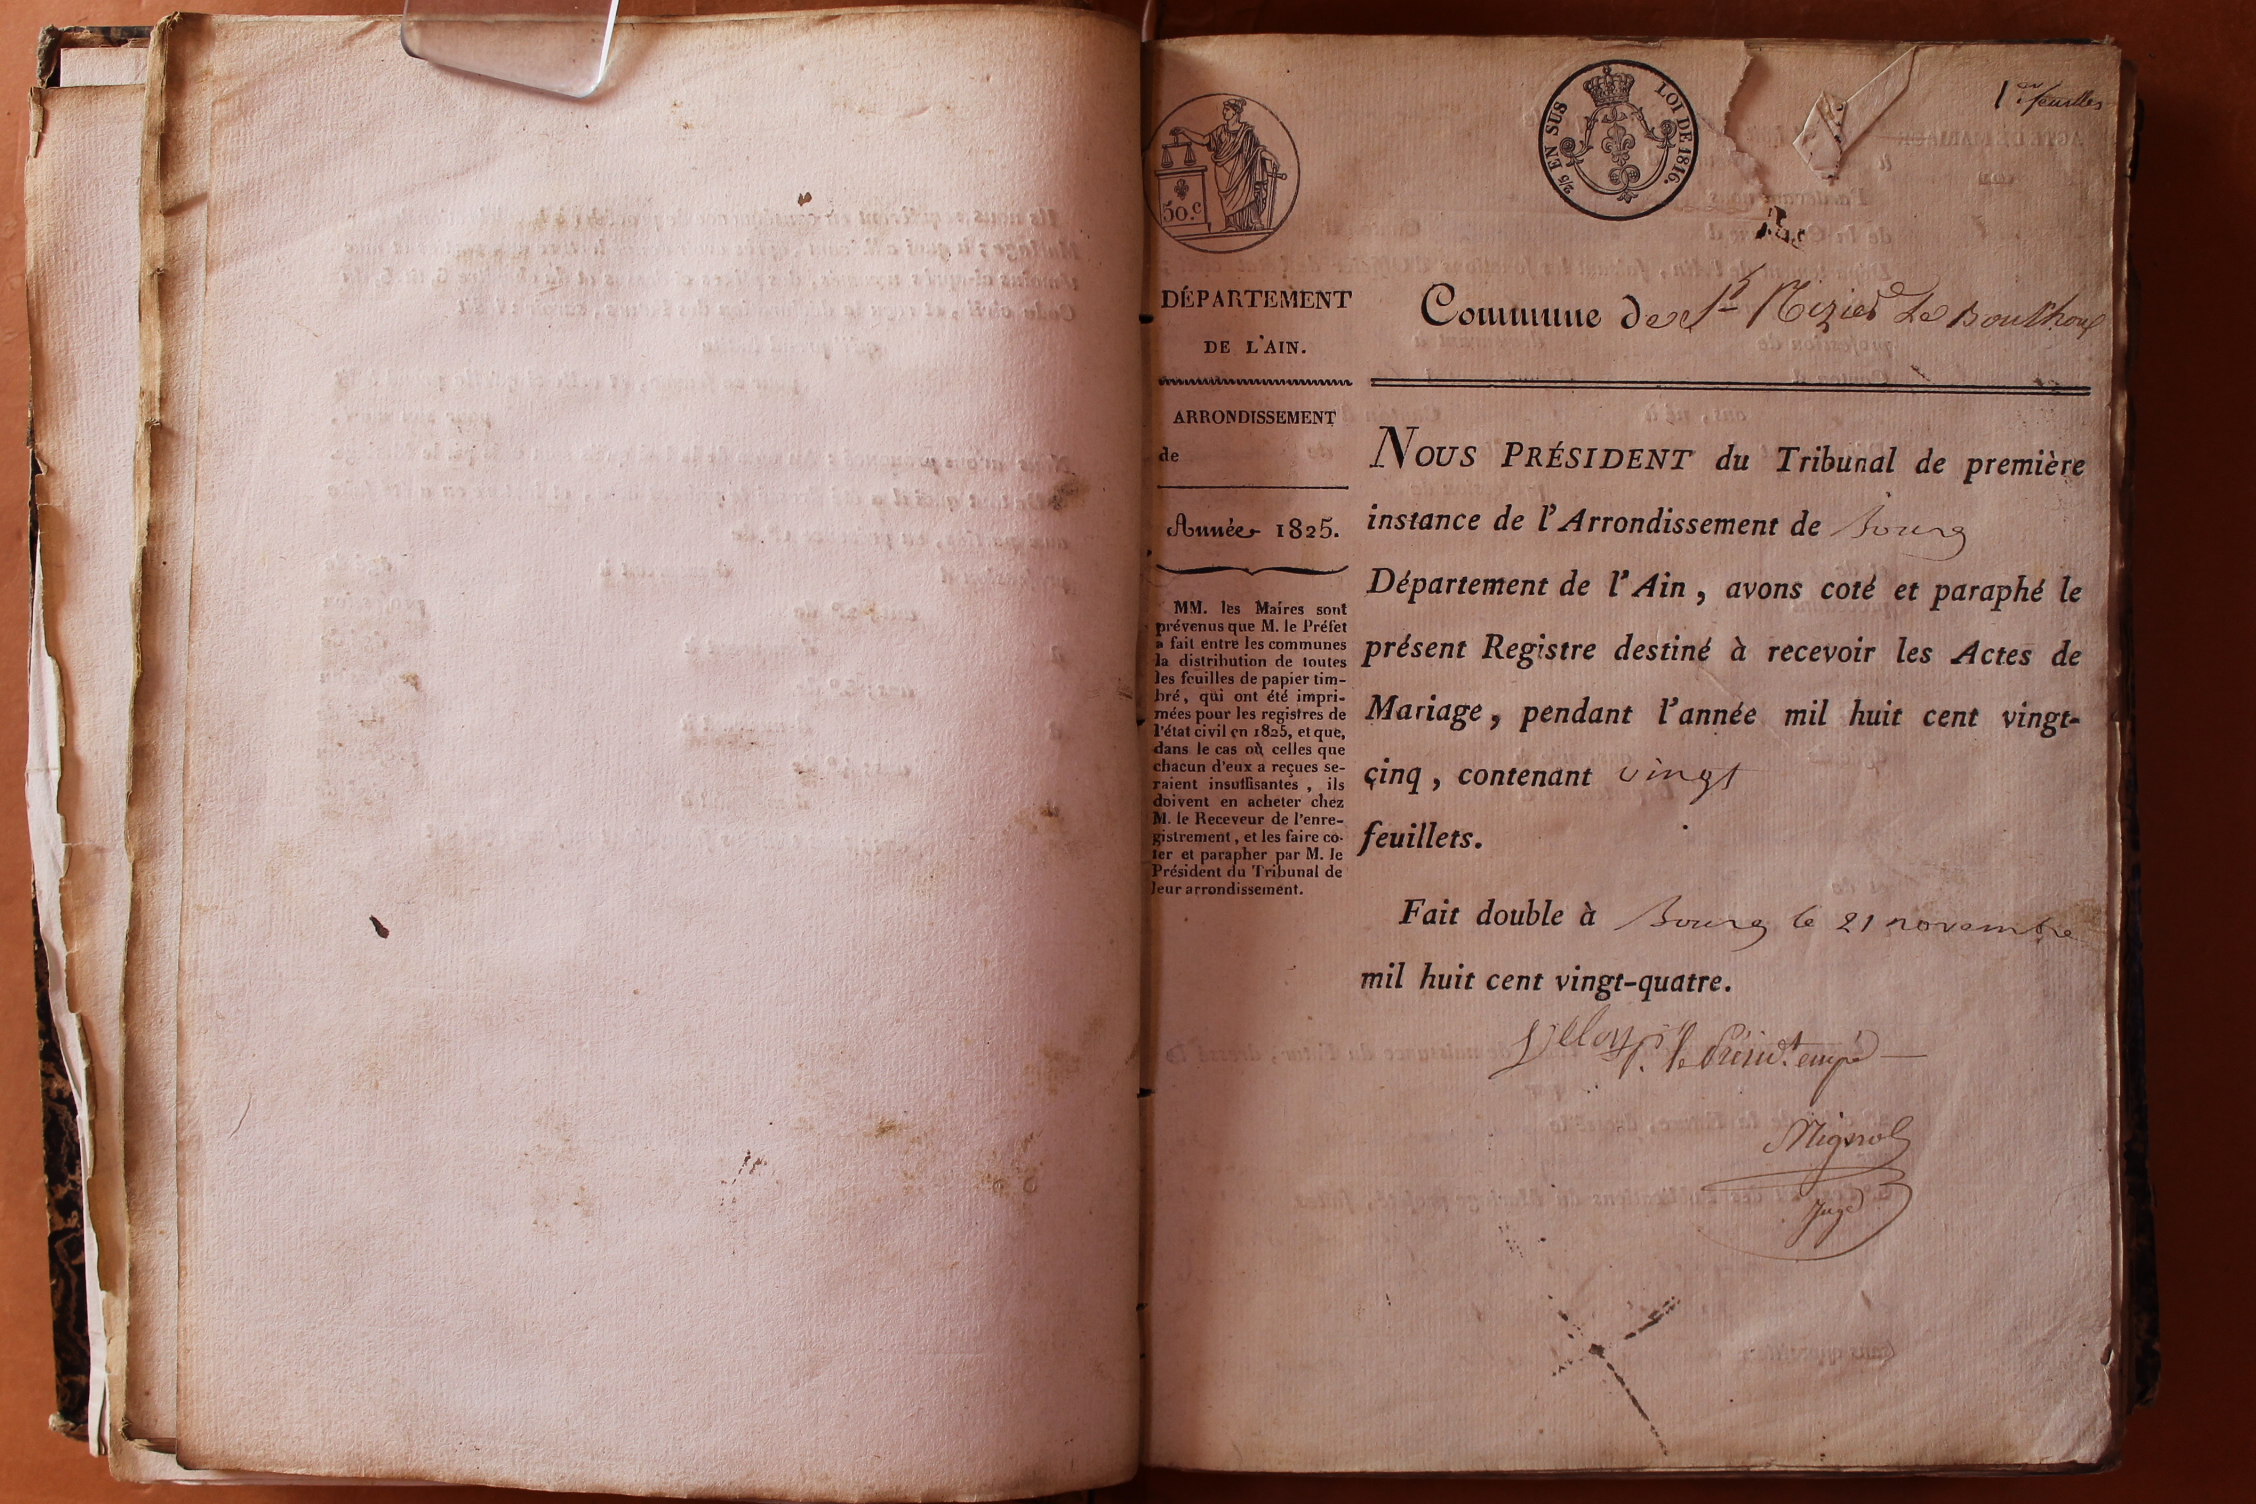 1er feuillet
50.c
2/5 EN SUS LOI DE 1816.
DÉPARTEMENT
DE L'AIN.
ARRONDISSEMENT
de
Année 1825.
MM. les Maires sont
prévenus que M. le Préfet
a fait entre les communes
la distribution de toutes
les feuilles de papier tim-
bré, qui ont été impri-
mées pour les registres de
l'état civil en 1825, et que,
dans le cas où celles que
chacun d'eux a reçues se-
raient insuffisantes, ils
doivent en acheter chez
M. le Receveur de l'enre-
gistrement, et les faire co-
ter et parapher par M. le
Président du Tribunal de
leur arrondissement.
Commune de St Nizier Le Bouchoux
NOUS PRÉSIDENT du Tribunal de première
instance de l'Arrondissement de Bourg
Département de l'Ain, avons coté et paraphé le
présent Registre destiné à recevoir les Actes de
Mariage, pendant l'année mil huit cent vingt-
çinq, contenant vingt
feuillets.
Fait double à Bourg le 21 novembre
mil huit cent vingt-quatre.
p. le Présidt. empé
Juge